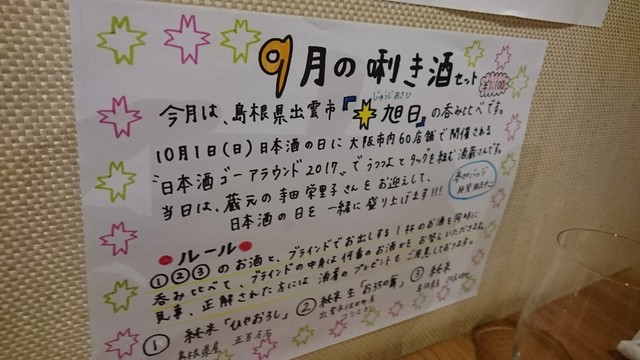 9月の唎き酒セット
¥1,100
じゅうじあさひ
今月は、島根県出雲市『旭日』の呑み比べです。
10月1日(日)日本酒の日に大阪市内60店舗で開催される
"日本酒ゴーアラウンド2017"でうつつよとタッグを組む酒蔵さんです。
当日は、蔵元の寺田栄里子さんをお迎えして、
日本酒の日を一緒に盛り上げます!!!
ルール
①②③のお酒と、ブラインドでお出しする1杯のお酒を同時に
呑み比べて、ブラインドの中身は何番のお酒かをお答えいただきます。
見事、正解された方には酒肴のプレゼントもご用意しております。
① 純米「ひやおろし」
島根県産 五百万石
② 純米生
コシヒカリ
③ 純米